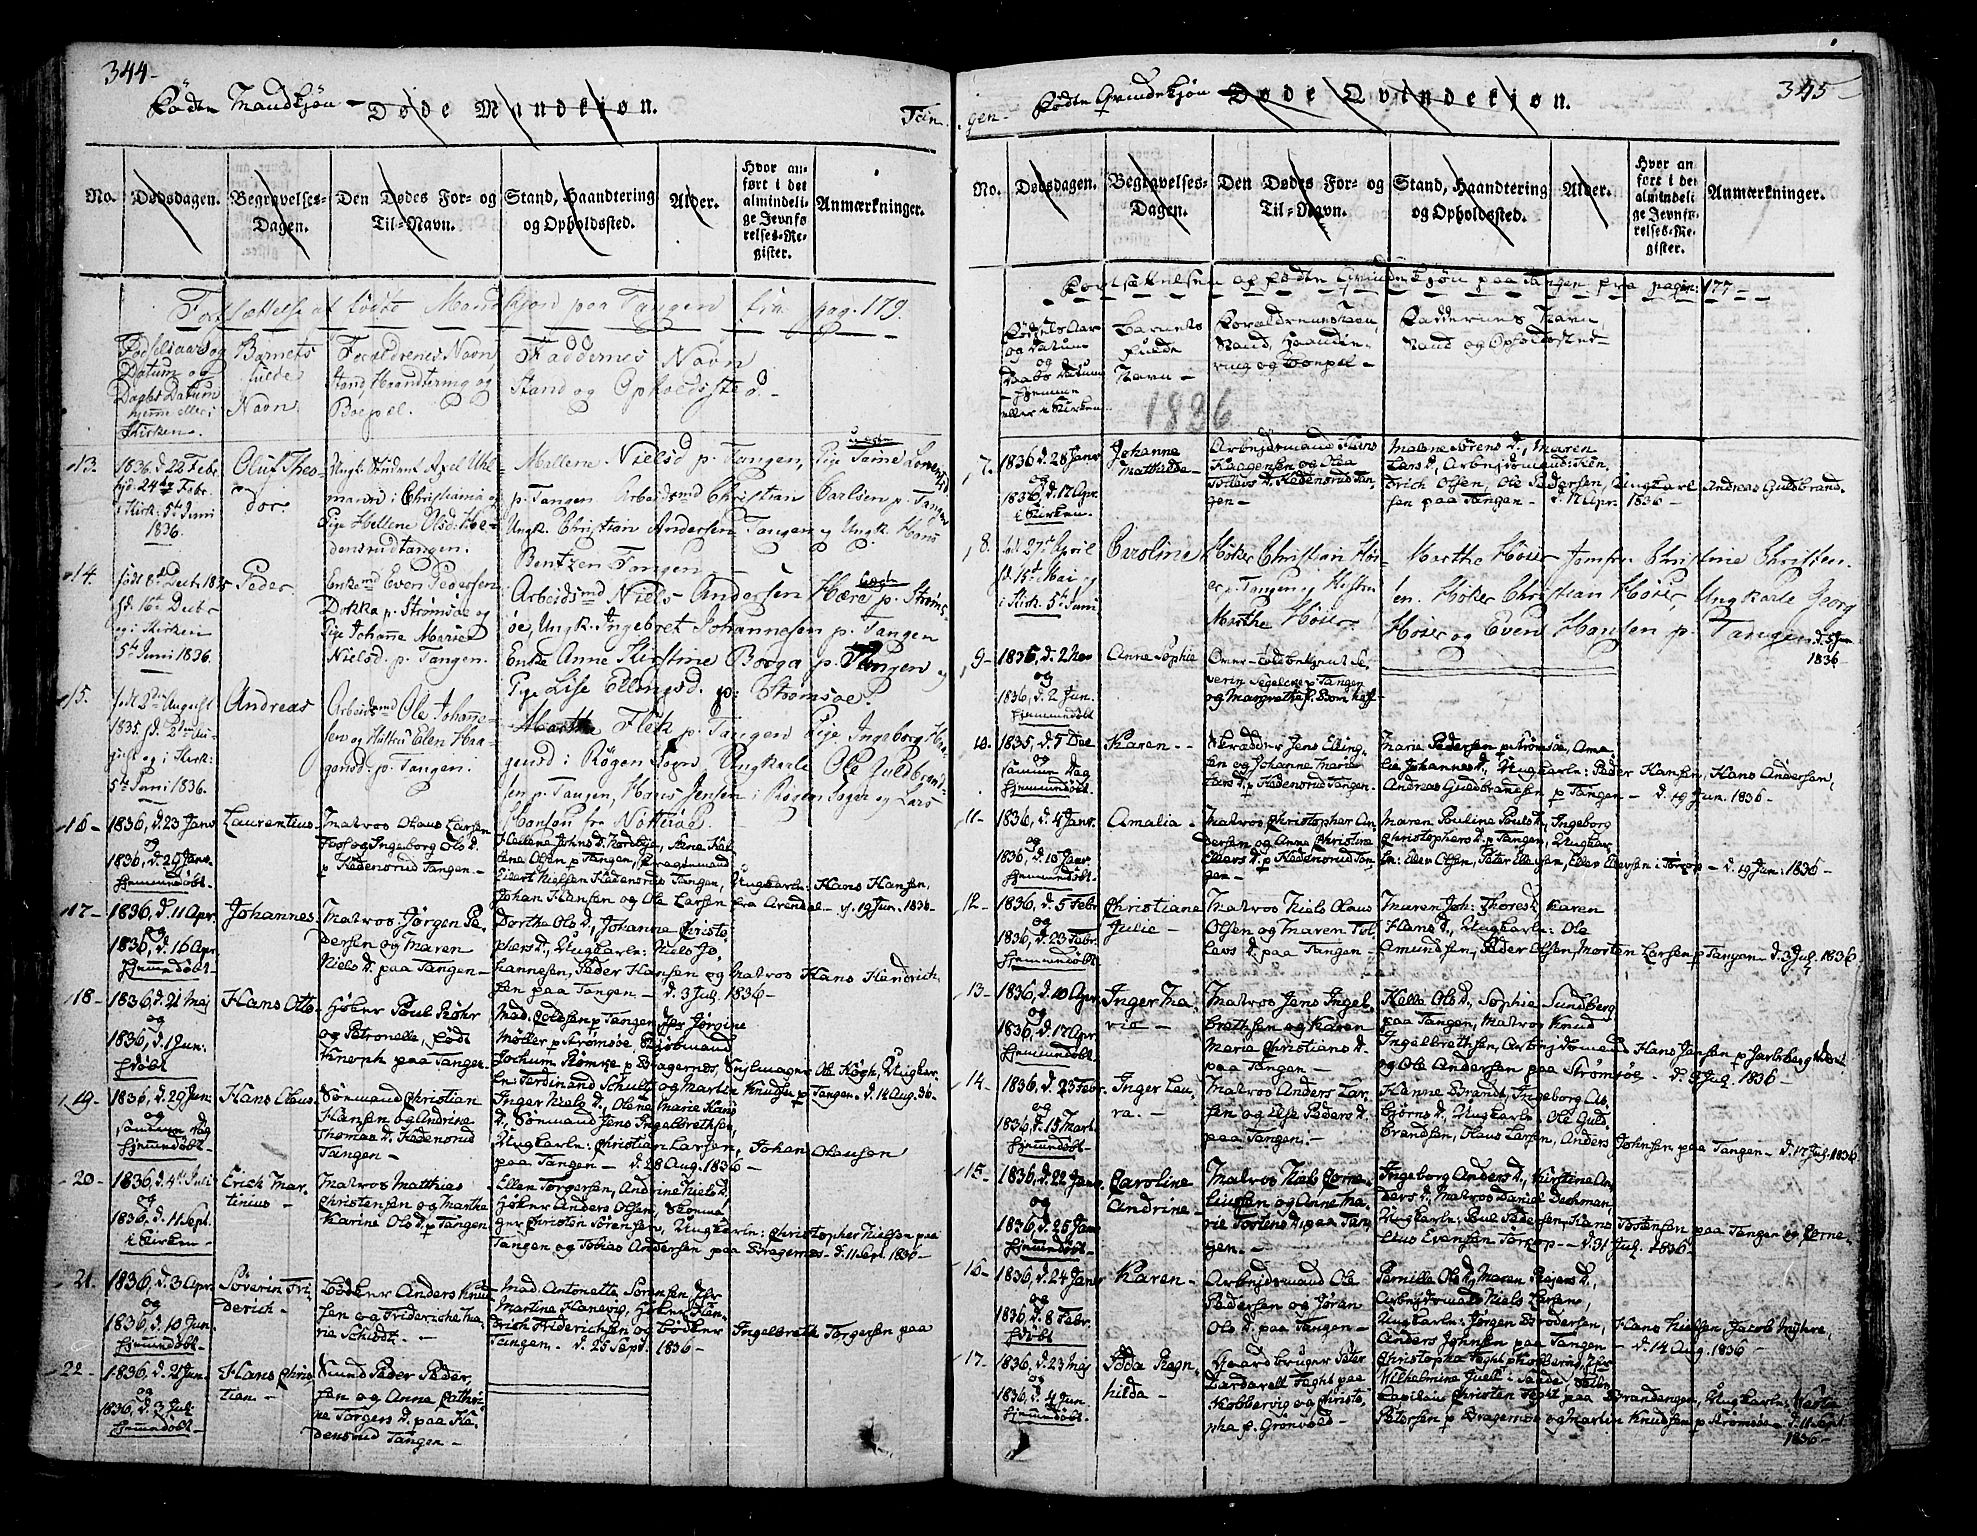 344-
Fødte Mandkjøn - Døde Mandkjøn.
Tan
No.
Dødsdagen.
Begravelses-
Dagen.
Den Dødes For- og
Til-Navn.
Stand, Haandtering
og Opholdssted.
Alder.
Hvor an-
ført i det
almindeli-
ge Jevnfø-
relses-Re-
gister.
Anmærkninger.
Fortsættelse af fødte Mandkjøn paa Tangen fra pag. 179.
Fødselsaar og
Datum og
Daabs Datum
hjemme eller i
Kirken.
Barnets
fulde
Navn
Forældrenes Navn
Stand Haandtering og
Boepel.
Faddernes Navn
Stand og Opholdssted.
13.
1836 d. 22 Febr.
hjd. 24de Febr.
i Kirk. 5te Juni
1836.
Oluf Theo-
dor.
Ungk. Student Axel
i Christiania og
Pige Hellene Olsd. He-
densrudtangen.
Mallene Nielsd p. Tangen, Pige
p. Tangen Arbeidsmd Christian Carlsen p. Tangen
Ungk. Christian Andersen Tangen og Ungk. Hans
Bentzen Tangen
14.
født 8de Decbr 1835
hd. 16te Decbr
og i Kirken
5te Juni 1836.
Peder
Enkemd Even Pedersen
Dokka p. Strømsøe og
Pige Johanne Marie
Nielsd. p. Tangen.
Arbeidsmd Niels Andersen p. Strøms-
øe, Ungk. Ingebret Johannesen p. Tangen
Enke Anne Kirstine Borga p. Tangen og
Pige Lise Ellingsd. p. Strømsøe.
15.
født 2den August
1835.
gust og i Kirk:
5te Juni 1836.
Andreas
Arbeidsmd Ole Johanne-
sen og Hustru Elen Haa-
gensd. p. Tangen.
Marthe Flek p. Tangen Pige Ingeborg Haa-
gensd i Røgen Sogn, Ungkarle Ole Guldbrand-
sen p. Tangen, Hans Jensen i Røgen Sogn og Lars
Hansen fra Nøtterøe.
16-
1836, d. 23 Janr
og
1836, d. 29 Janr.
hjemmedøbt-
Laurentius.
Matros Olaus Larsen
Foss og Ingeborg Ols d.
p Hedensrud Tangen-
Hellene Johns d. Nordbye, Anne Ka-
trine Olsen p Tangen, Dragonmand
Eivert Nielsen Hedensruds Tangen, Ungkarln: Hans Hansen,
Johan Hansen og Ole Larsen fra Arendal - d. 19 Jun. 1836-
17-
1836, d. 11 Apr.
og
1836, d. 16 Apr
hjemmedøbt-
Johannes.
Matros Jørgen Pe-
dersen og Maren
Niels d. paa Tangen-
Dorthe Ols d, Johanne Christo-
phers d., Ungkarln: Niels Jo-
hannesen, Peder Hansen og Matros Hans Hendrich-
sen paa Tangen - d. 3 Jul. 1836-
18-
1836, d. 21 Maj
og
1836, d. 1 Jun:
hjdøbt
Hans Otto
Høker Poul Røhr
og Petronelle, født
Knoph paa Tangen-
Mad. Coldsen p Tangen, Jfr Jørgine
Møller p Strømsøe Kjøbmand
Jochum Rømke p Bragernes, Sejlmager Ole Kogh, Ungkar-
ln: Ferdinand Schultz og Martin Knudsen p Tangen. d. 14 Aug. 36.
19-
1836, d. 29 Jun:
og
samme Dag
hjemmedøbt-
Hans Olaus
Sømand Christian
Hansen og Andrine
Thomas d. Hedensrud
Tangen-
Inger Niels d., Olene Marie Hans
d, Sømand Jens Ingelbrethsen,
Ungkarln: Christian Larsen, Johan Olausen
paa Tangen - d. 28 Aug. 1836-
20-
1836, d. 4de Juli
og
1836, d. 11 Sept.
i Kirken-
Erich Mar-
tinius-
Matros Matthias
Christensen og Marthe
Karine Ols d. p Tangen
Ellen Torgersen, Andrine Niels d,
Høker Anders Olsen, Skoma-
ger Christen Sørensen, Ungkarln: Christopher Nielsen paa
Tangen og Tobias Andersen paa Bragernes - d. 11 Sept. 1836-
21.
1836, d. 3 Apr
og
1836, d. 10 Jun.
hjemmedøbt-
Søverin Fri-
derich-
Bødker Anders Knud-
sen og Friderichche Ma-
rie Schiødt.-
Mad Antonette Sørensen, Jfr
Martine Hanevig, Høker Hen-
drich Friderichsen og Bødker Ingelbreth Torgersen paa
Tangen.- d. 25 Sept. 1836-
22-
1836, d. 21 Jun.
og
1836, d. 3 Jul-
hjemmedøbt-
Hans Chris-
tian.-
Sund Peder Peder-
sen og Anne Cathri-
ne Torgers d. paa He-
densrud Tangen-
gen-
Fødte Qvindekjøn Døde Qvindekjøn.
345
No.
Dødsdagen.
Begravelses-
Dagen.
Den Dødes For- og
Til-Navn.
Stand, Haandtering
og Opholdssted.
Alder.
Hvor an-
ført i det
almindeli-
ge Jevnfø-
relses-Re-
gister.
Anmærkninger.
Fortsættelsen af fødte Qvindekjøn paa Tangen fra pagin: 177-
Fødsels Aar
og Datum
og
Daabs Datum
hjemme
eller i Kirken.
Barnets
fulde
Navn-
Forældrenes Navn,
Stand, Haandte-
ring og Boepel-
Faddernes Navn,
Stand og Opholdssted-
1836
7.
1836 d. 28 Janr
og
1836, d. 17 Apr.
i Kirken.
Johanne
Mathilde-
Arbejdsmand Hans
Haagensen og Olea
Tollevs d. Hedensrud Tan-
gen-
Malene Sørens d, Maren
Lars d, Arbejdsmand: Hen-
drich Olsen, Ole Pedersen, Ungkarl Andreas Guldbrand-
sen paa Tangen- d. 17 Apr. 1836-
8.
født 27de April
hd. 15de Mai
i Kirk. 5te Juni
Caroline
Høker Christian Høi-
er p. Tangen og Hustru
Marthe Høier.
Marthe Høier Jomfru Christine Christen-
sen. Høker Christian Høier, Ungkarle Georg
Høier og Even Hansen p. Tangen. d. 5 Jun
1836-
9-
1836, d. 2
og
1836, d. 2 Jun.
hjemmedøbt
Anne Sophie
verin Segelcke p. Tangen
og Margrethe f. Bomhoff-
10.
1835, d. 5 Dec
og
samme Dag
hjemmedøbt-
Karen-
Skrædder Jens Elling-
sen og Johanne Marie
Lars d. p Hedensrud Tangen-
Marie Pedersen p Strømsøe, Ama-
lie Johannes d., Ungkarln: Peder Hansen, Hans Andersen,
Andreas Guldbrandsen p Tangen - d. 19 Jun. 1836-
11-
1836, d. 4 Janr.
og
1836, d. 10 Janr.
hjemmedøbt-
Amalia-
Matros Christopher An-
dersen og Anne Christine
Ellevs d. p Hedensrud Tan-
gen-
Maren Pauline Pouls d., Ingeborg
Christophers d. p Tangen, Ungkar-
ln: Ellev Olsen, Peter Ellevsen, Ellev Ellevsen i Torsøp - d. 19 Jun. 1836-
12-
1836, d. 5 Febr
og
1836, d. 23 Febr.
hjemmedøbt-
Christiane
Julie-
Matros Niels Olaus
Olsen og Maren Tol-
levs d. paa Tangen-
Maren Joh: Thores d, Karen
Hans d, Ungkarln: Ole
Amundsen, Peder Olsen, Morten Larsen p Tangen - d. 3 Jul. 1836
13-
1836, d. 10 Apr,
og
1836, d. 17 Apr
hjemmedøbt-
Inger Ma-
ria-
Matros Jens Ingel-
brethsen og Karen
Marie Christians d.
paa Tangen-
Helle Ols d., Sophie Sundberg
paa Tangen, Matros Knud
Ingelbrethsen, Arbejdsmand Hans Jensen p Jarlsberg
og Ole Andersen paa Strømsøe - d. 9 Jul. 1836-
14-
1836, d. 23 Febr.
og
1836, d. 15 Mart.
hjemmedøbt-
Inger Lau-
ra.-
Matros Anders Lar-
sen og Else Peders d.
paa Tangen.-
Hanne Brandt, Ingeborg As-
bjørns d., Ungkarln: Ole Guld-
brandsen, Hans Larsen, Anders Johnsen paa Tangen- d. 17 Jul. 1836
15-
1836, d. 22 Janr.
og
1836, d. 25 Janr
hjemmedøbt-
Caroline
Andrine-
Matros Niels Corne-
liussen og Anne Ma-
rie Torstens d. paa Tan-
gen.-
Ingeborg Anders d., Kirstine An-
ders d., Matros Daniel Dechman,
Ungkarln: Poul Pedersen, Hans Torstensen paa Tangen og Corne-
lius Evensen Torsøp- d. 31 Jul. 1836.
16-
1836, d. 24 Janr
og
1836, d. 8 Febr.
hjdøbt
Karen-
Arbejdsmand Ole
Pedersen og Jøran
Ols d. paa Tangen-
Pernille Ols d, Maren Rejers d.,
Arbejdsmand Niels Larsen,
Ungkarln: Jørgen Brodersen, Hans Nielsen, Jacob Myhre,
Anders Johnsen paa Tangen- d. 14 Aug. 1836-
17-
1836, d. 23 Maj
og
1836, d. 4 Jun.
hjemmedøbt-
Idda Ragn-
hilda-
Gaardbruger Peter
Lardarell Feght paa
Kobbervig og Christo-
pha f. Grønvold-
Christopha Feght p Kobbervig, Jfr
Wilhelmine Juell i Sande,
Capitain Christen Feght paa Brandengen, Ungkarln:
Petersen p Bragernes og Martin Knudsen p Strømsøe- d. 11 Sept.
1836-